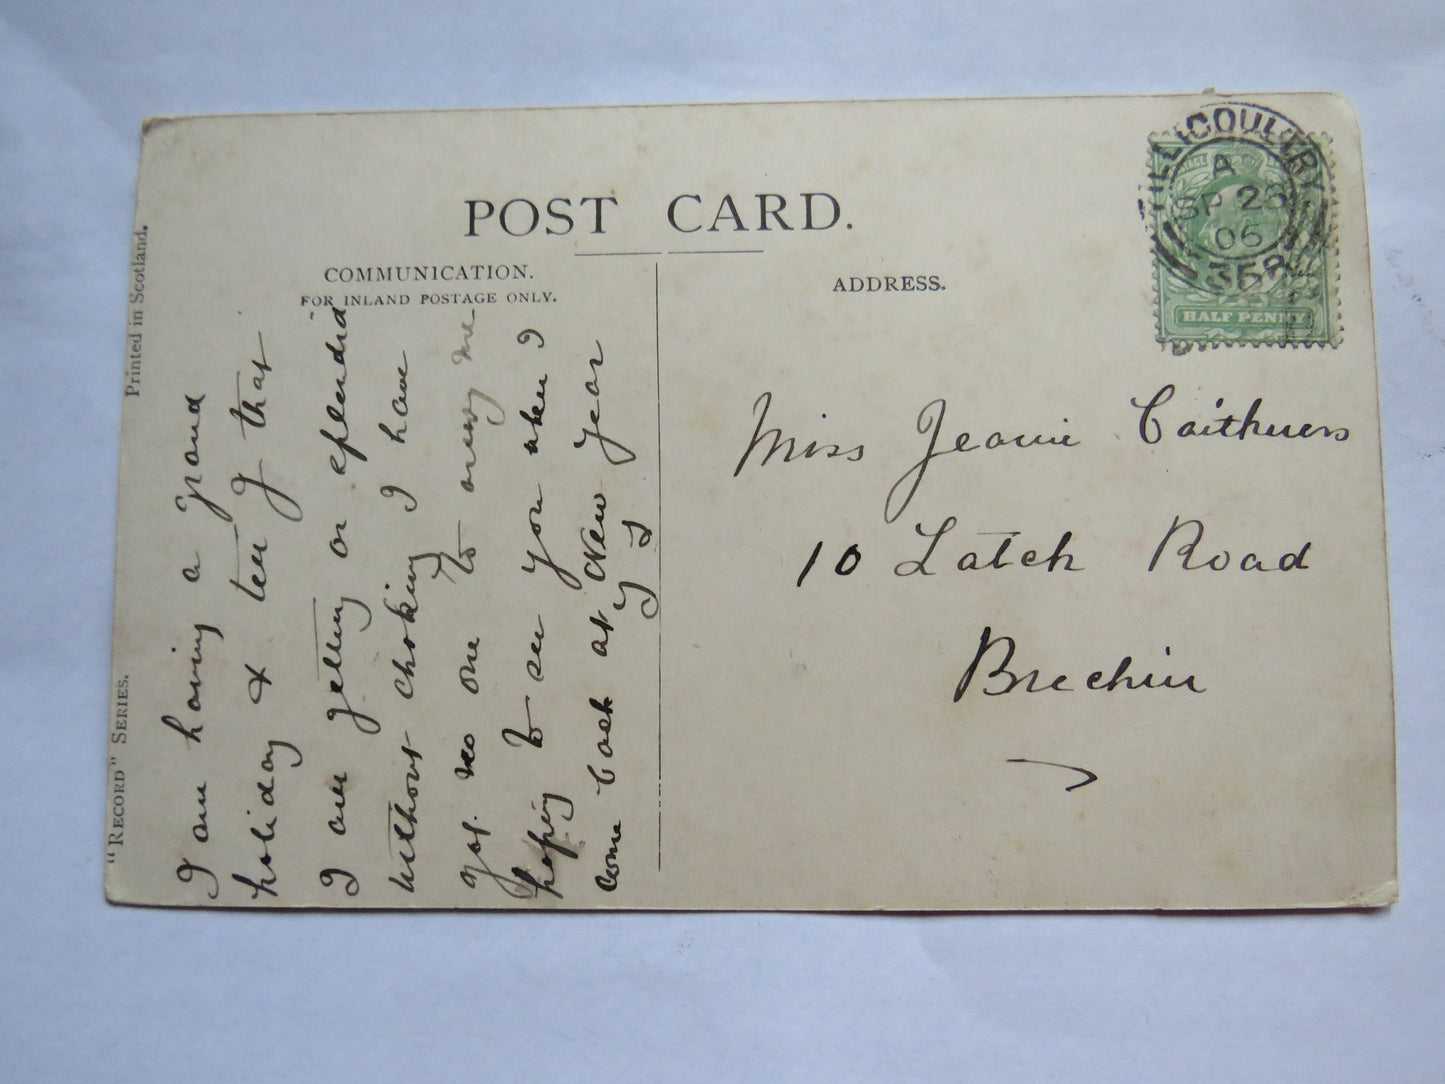 POST CARD.
COMMUNICATION.
FOR INLAND POSTAGE ONLY.
ADDRESS.
"RECORD" SERIES.
Printed in Scotland.
I am having a grand
holiday & tell J that
I am getting on splendid
without choking I have
got no one to annoy me
hoping to see you when I
come back at New Year
Miss Jeanie Caithness
10 Latch Road
Brechin
TILLICOULTRY
SP 23
06
358
HALF PENNY